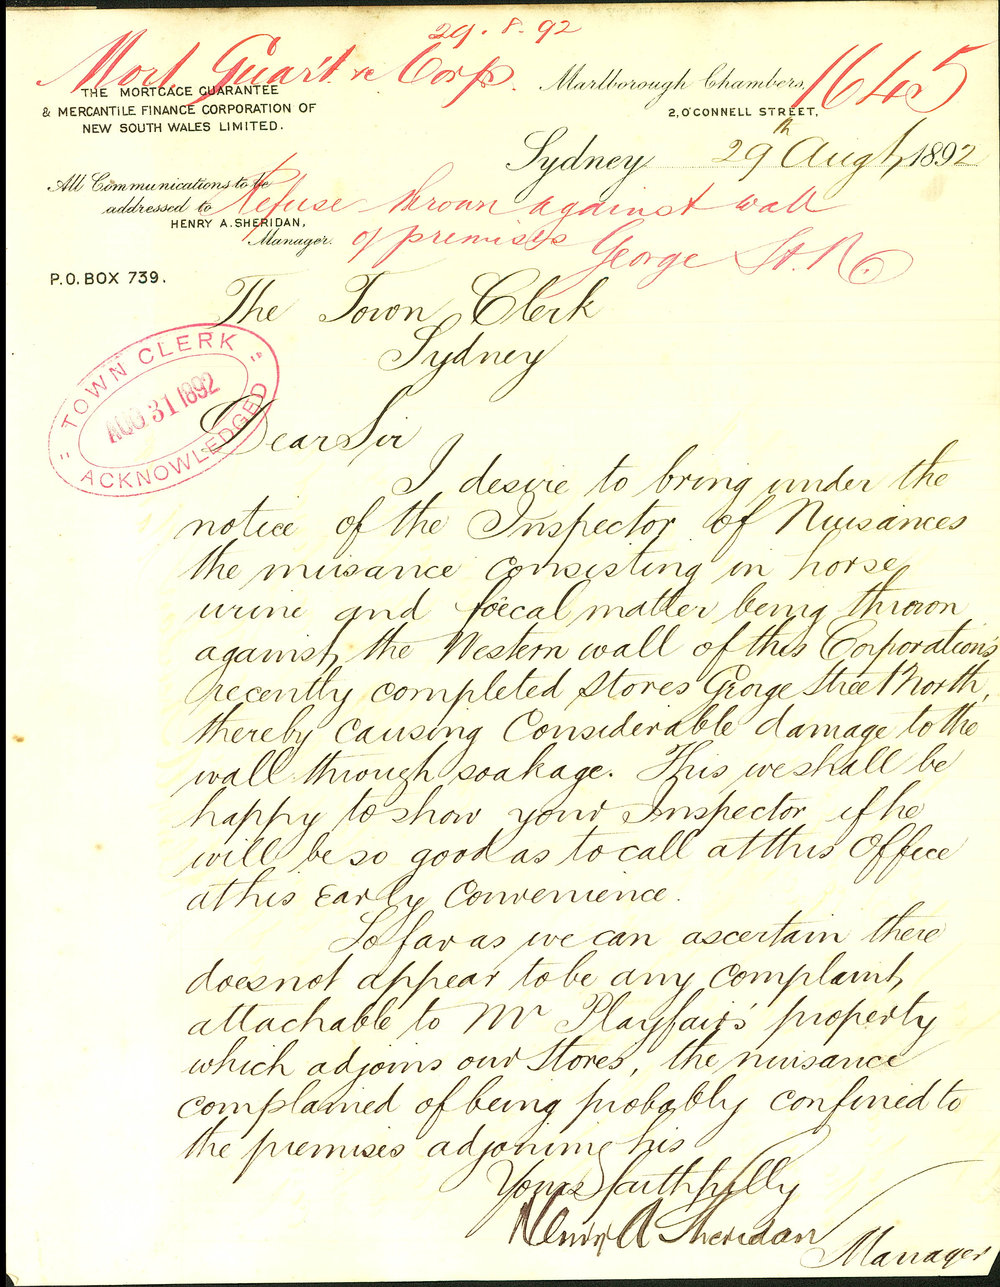 29.8.92
Mort Guar't &c Corp.
1645
THE MORTGAGE GUARANTEE
& MERCANTILE FINANCE CORPORATION OF
NEW SOUTH WALES LIMITED.
Marlborough Chambers,
2, O'CONNELL STREET,
Sydney 29th Augt 1892
All Communications to be
addressed to
HENRY A. SHERIDAN,
Manager.
Refuse thrown against wall
of premises George St. N.
P.O. BOX 739.
The Town Clerk
Sydney
TOWN CLERK
AUG 31 1892
ACKNOWLEDGED
Dear Sir
I desire to bring under the
notice of the Inspector of Nuisances
the nuisance consisting in horse
urine and foecal matter being thrown
against the Western wall of this Corporation's
recently completed Stores George Street North,
thereby causing Considerable damage to the
wall through soakage. This we shall be
happy to show your Inspector if he
will be so good as to call at this Office
at his Early Convenience.
So far as we can ascertain there
does not appear to be any complaint
attachable to Mr Playfair's property
which adjoins our Stores, the nuisance
complained of being probably confined to
the premises adjoining his
Yours faithfully
Henry A Sheridan
Manager